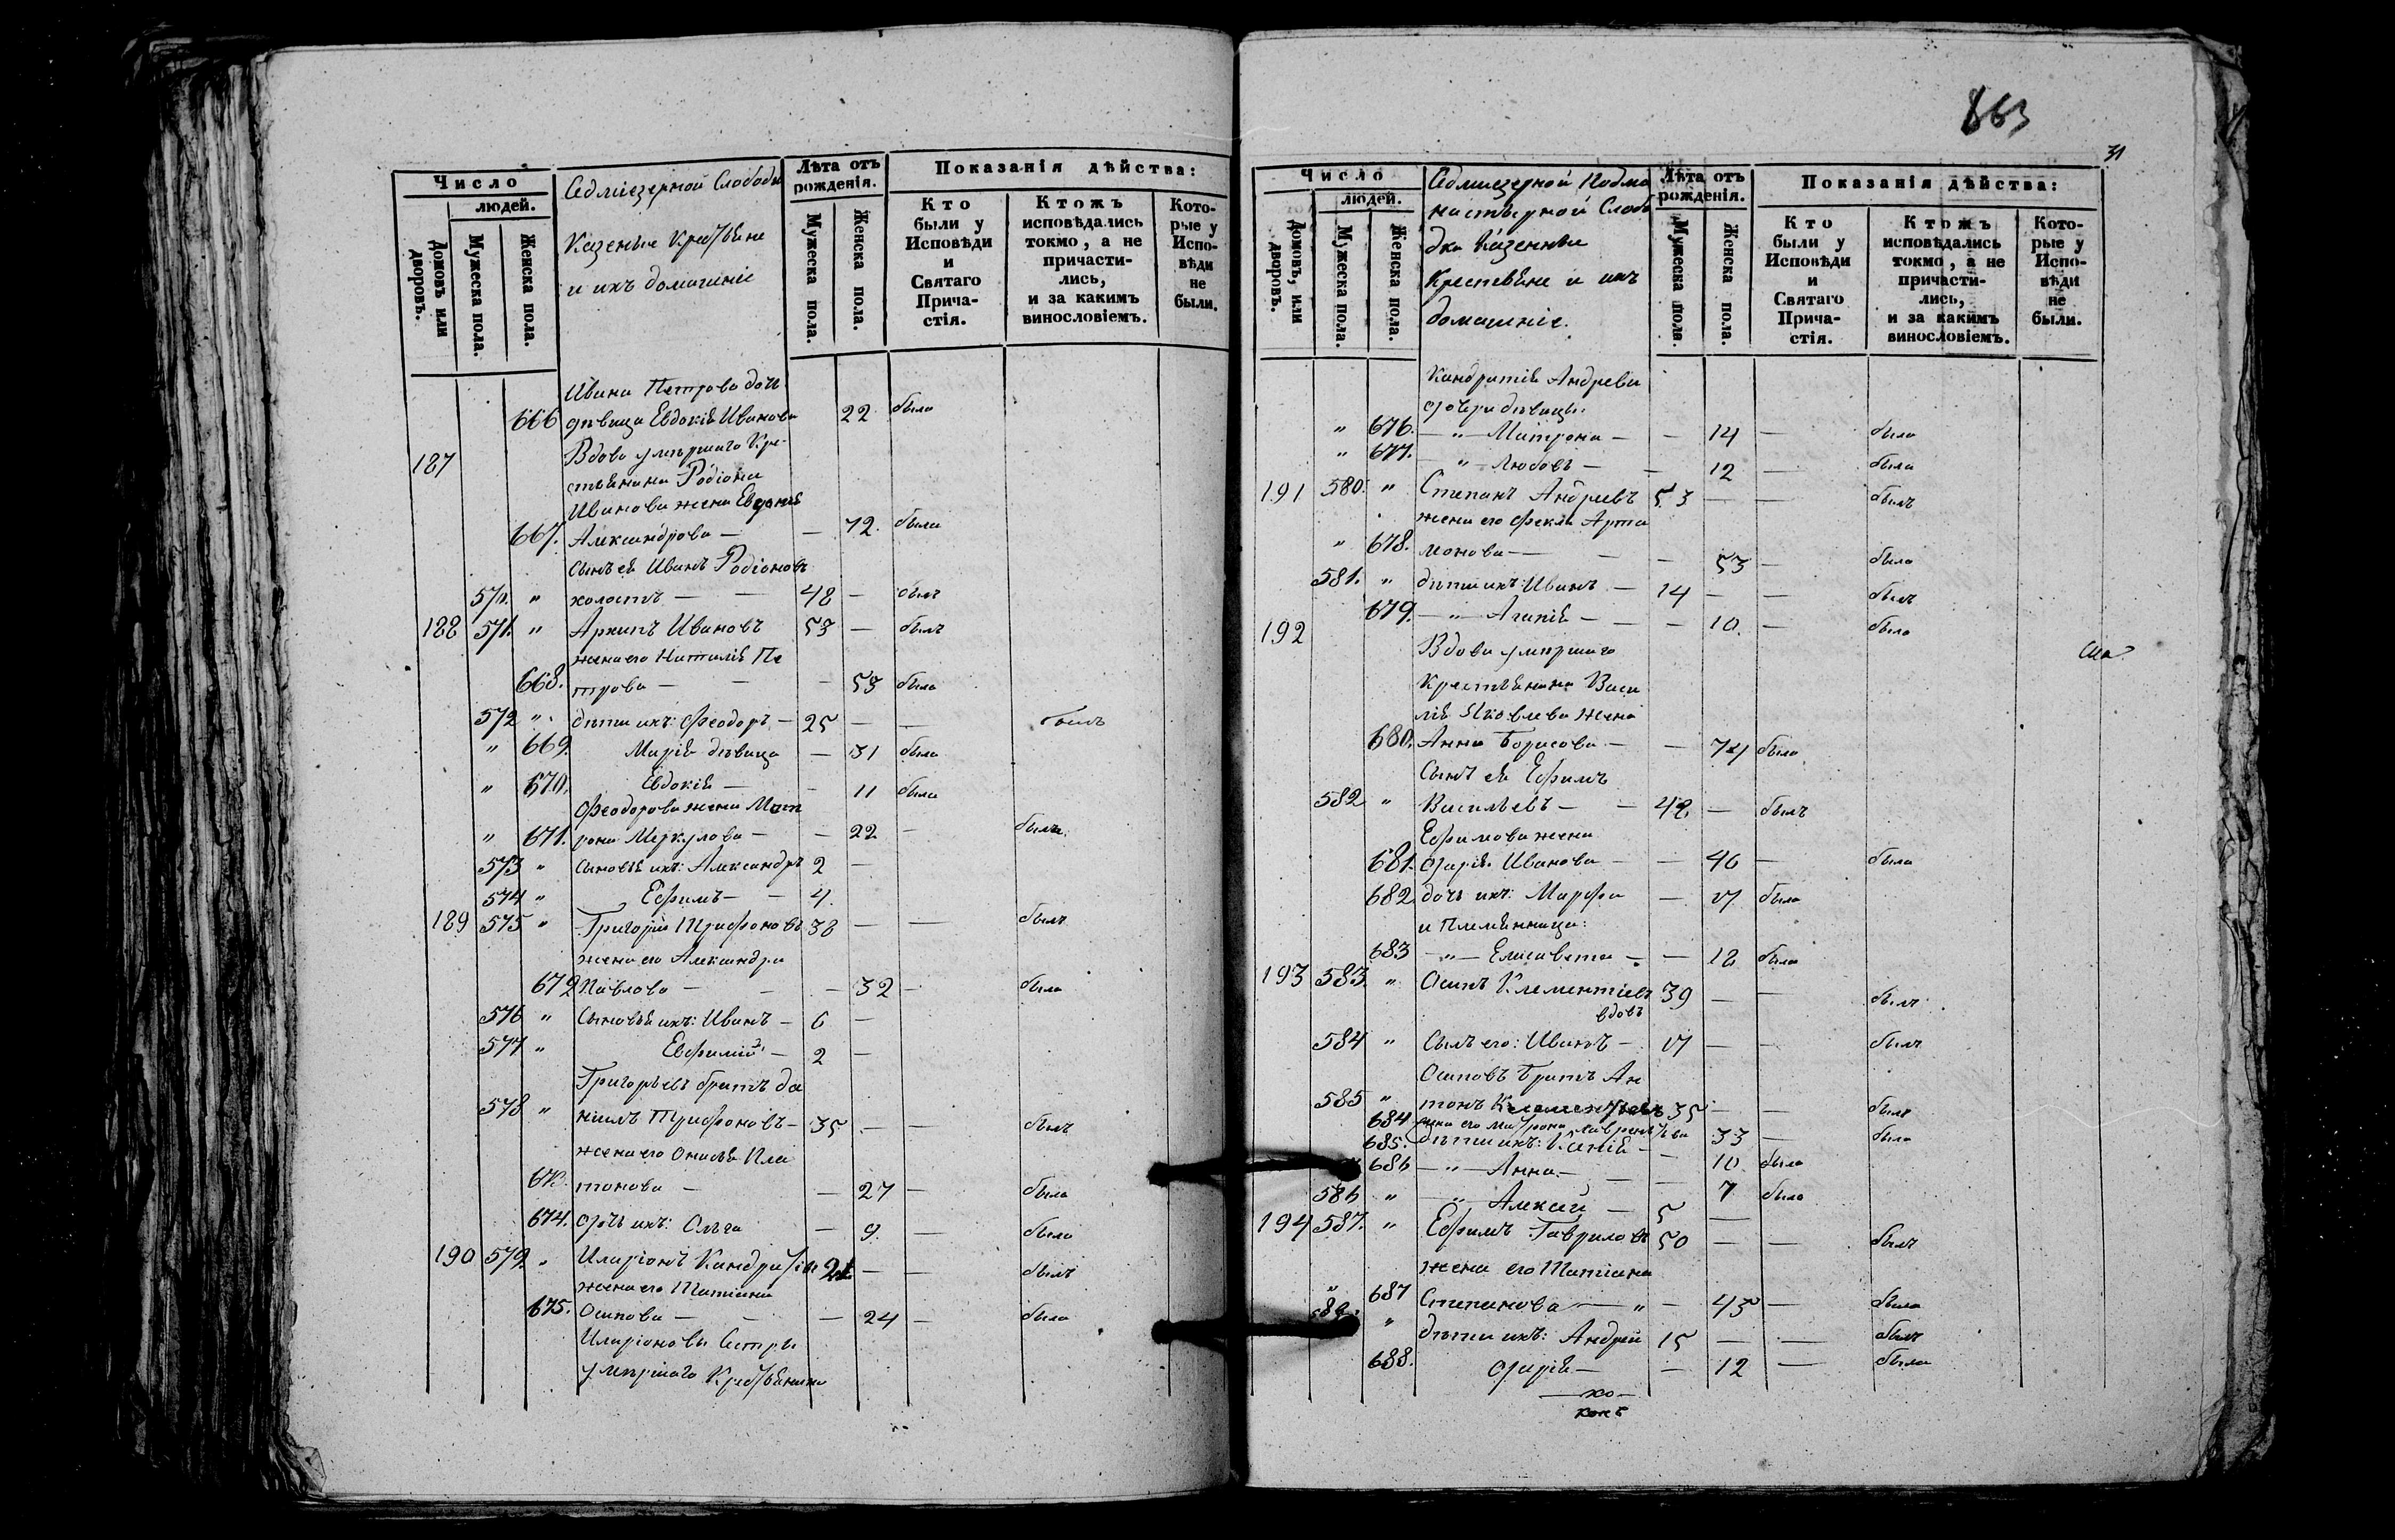 Число
людей.
Домовъ или дворовъ.
Мужеска пола.
Женска пола.
Седміезерной Слободы
Казенные Крестьяне
и ихъ домашніе
Лѣта отъ рожденія.
Мужеска пола.
Женска пола.
Показанія дѣйства:
Кто были у Исповѣди и Святаго Прича-стія.
Ктожъ исповѣдались токмо, а не причасти-лись, и за какимъ винословіемъ.
Кото-рые у Испо-вѣди не были.
Ивана Петрова дочь
666 дѣвица Евдокія Иванова 22 была
187 Вдова умершаго Кре-
стьянина Родіона
Иванова жена Евдокія
667. Александрова — — 72. была
сынъ ея Иванъ Родіоновъ
570. " холостъ — — 48 — былъ
188 571. " Архипъ Ивановъ 53 — былъ
жена его Наталія Пе
668. трова — — — 53 была
572 " дѣти ихъ: Феодоръ — 25 — — былъ
" 669. Марія дѣвица — 31 была
" 670. Евдокія — — 11 была
Феодорова жена Мат
" 671. рона Меркулова — — 22 — была
573 " сыновья ихъ: Александръ 2 —
574 " Ефимъ — — 4.
189 575 " Григорій Трифоновъ 38 — — былъ
жена его Александра
672 Павлова — — — 32 — была
576 " Сыновья ихъ: Иванъ — 6 —
577 " Евфимій — 2 —
Григорьевъ братъ Да
578 " ніилъ Трифоновъ — 35 — — былъ
жена его Онисья Пла
673. тонова — — 27 — была
674. дочь ихъ: Ольга — 9. — была
190 579. " Иларіонъ Кандратіевъ 21 — — былъ
жена его Татіана
675. Осипова — — — 24 — была
Иларіоновы Сестры
умершаго Крестьянина
663
31
Число
людей.
Домовъ, или дворовъ.
Мужеска пола.
Женска пола.
Седміезерной Подмо
настырной Слобо
дки Казенные
Крестьяне и ихъ
домашніе.
Лѣта отъ рожденія.
Мужеска пола.
Женска пола.
Показанія дѣйства:
Кто были у Исповѣди и Святаго Прича-стія.
Ктожъ исповѣдались токмо, а не причасти-лись, и за какимъ винословіемъ.
Кото-рые у Испо-вѣди не были.
Кандратія Андрева
дочери дѣвицы:
" 676. — " — Матрона — — 14 — была
" 677. " — Любовь — — 12 — была
191 580. " Степанъ Андреевъ 53 — — былъ
жена его Фекла Арта
" 678. монова — — — 53 — была
581. " дѣти ихъ: Иванъ — 14 — — былъ
679. — " — Агапія — — — 10. — была
192 Вдова умершаго
Крестьянина Васи
лія Яковлева жена
680. Анна Борисова — — 74 была
Сынъ ея Ефимъ
582 " Васильевъ — — 48 — былъ
Ефимова жена
681. Дарія Иванова — — 46 — была
682 дочь ихъ: Марфа — 17 была
и Племянница:
683 — " — Елисавета — — 18 была
193 583. " Осипъ Клементіевъ 39 — — былъ
вдовъ
584 " Сынъ его: Иванъ — 17 — — былъ
Осиповъ Братъ Ан
585 " тонъ Клементьевъ 35 — — былъ
684 жена его Матрона Лаврентьева 33 — была
685. дѣти ихъ: — — 10 была
686 — " — Анна — — 7 была
586 " — " — Алексѣй — 5 —
194 587. " Ефимъ Гавриловъ 50 — — былъ
жена его Татіана
" 687 Степанова — " — 43 — была
588. " дѣти ихъ: Андрей 15 — — былъ
688. Дарія — — 12 — была